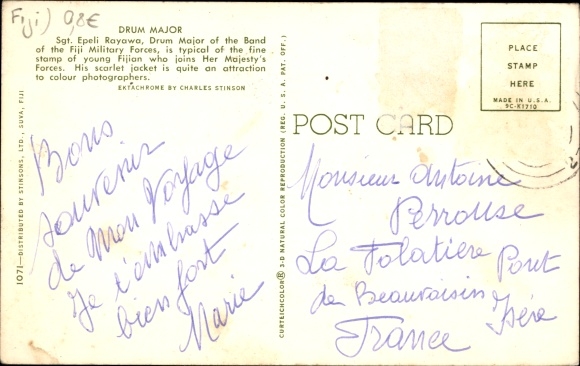 Fiji) 0,8€
DRUM MAJOR
Sgt. Epeli Rayawa, Drum Major of the Band
of the Fiji Military Forces, is typical of the fine
stamp of young Fijian who joins Her Majesty's
Forces. His scarlet jacket is quite an attraction
to colour photographers.
EKTACHROME BY CHARLES STINSON
1071—DISTRIBUTED BY STINSONS, LTD., SUVA, FIJI
Bons
souvenir
de Mon Voyage
Je t'embrasse
bien fort
Marie
CURTEICHCOLOR® 3-D NATURAL COLOR REPRODUCTION (REG. U.S.A. PAT. OFF.)
PLACE
STAMP
HERE
MADE IN U.S.A.
9C-K1710
POST CARD
Monsieur Antoine
Perrouse
La Folatière Pont
de Beauvoisin
Isére
France